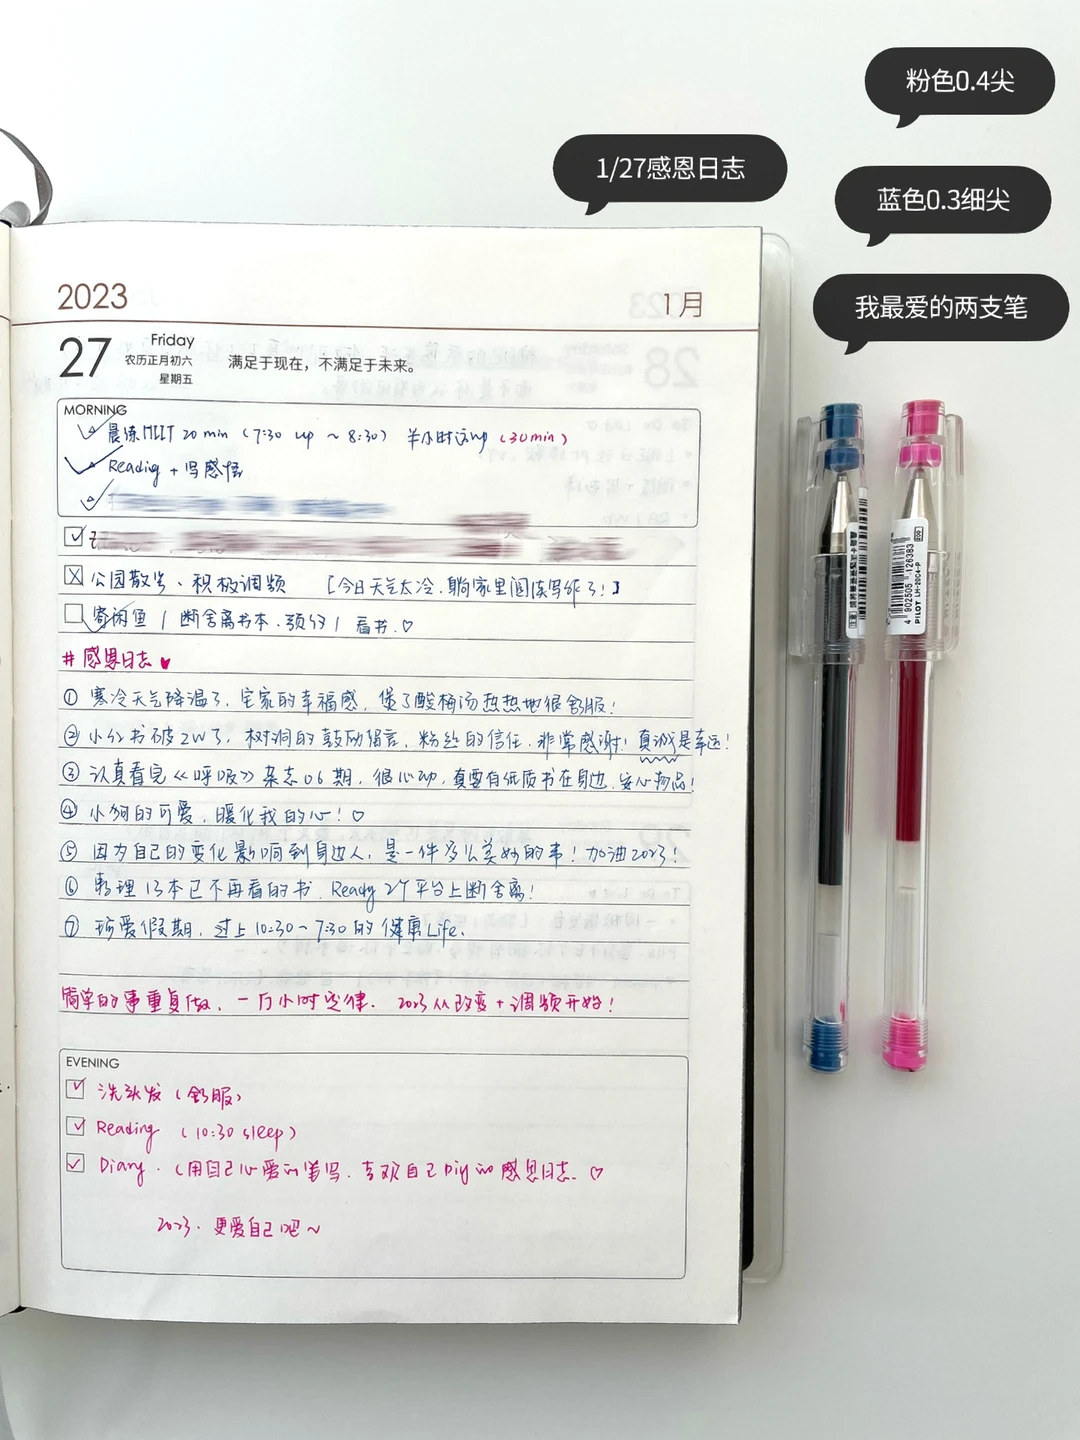 粉色0.4尖
1/27感恩日志
蓝色0.3细尖
我最爱的两支笔
2023
1月
27
Friday
农历正月初六
星期五
满足于现在，不满足于未来。
MORNING
晨练HIIT 20 min （7:30 up ~ 8:30） 半小时 （30min）
Reading + 写感悟
公园散步、积极调频 【今日天气太冷，躺家里阅读写作了！】
寄闲鱼 / 断舍离书本、预约 / 看书 ♡
# 感恩日志 ♥
① 寒冷天气降温了，宅家的幸福感，煲了酸梅汤热热地很舒服！
② 小红书破2W了，树洞的鼓励留言，粉丝的信任，非常感谢！真游是幸运！
③ 认真看完《呼吸》杂志06期，很心动，真要有纸质书在身边，安心物品！
④ 小狗的可爱，暖化我的心！♡
⑤ 因为自己的变化影响到身边人，是一件多么美妙的事！加油2023！
⑥ 整理13本已不再看的书，Ready 2个平台上断舍离！
⑦ 珍爱假期，过上10:30~7:30的健康Life.
简单的事重复做，一万小时定律. 2023从改变+调频开始！
EVENING
洗头发（舒服）
Reading （10:30 sleep）
Diary. （用自己心爱的笔写，喜欢自己Diy的感恩日志. ♡
2023. 更爱自己吧~
4 902505 126383
PILOT LH-20C4-P